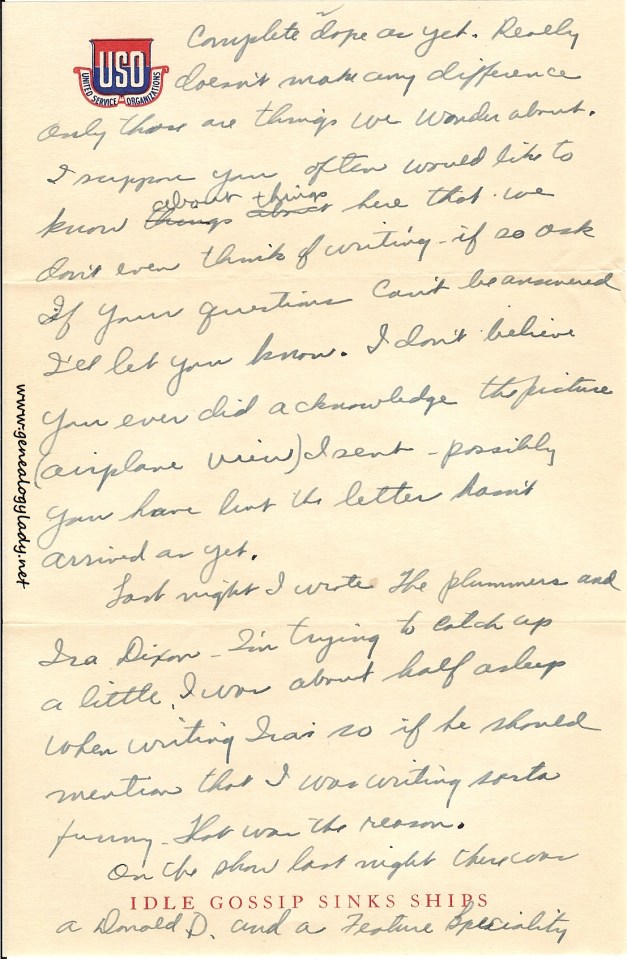 USO
UNITED SERVICE ORGANIZATIONS
Complete dope as yet. Really
doesn't make any difference
Only those are things we wonder about.
I suppose you often would like to
about things
know things about here that we
don't even think of writing - if so ask
If your questions can't be answered
I'll let you know. I don't believe
you ever did acknowledge the picture
(airplane view) I sent - possibly
you have but the letter hasn't
arrived as yet.
Last night I wrote the Plummers and
Ira Dixon - I'm trying to catch up
a little. I was about half asleep
when writing Ira's so if he should
mention that I was writing sorta
funny - that was the reason.
On the show last night there was
IDLE GOSSIP SINKS SHIPS
a Donald D. and a Feature Speciality
www.genealogylady.net